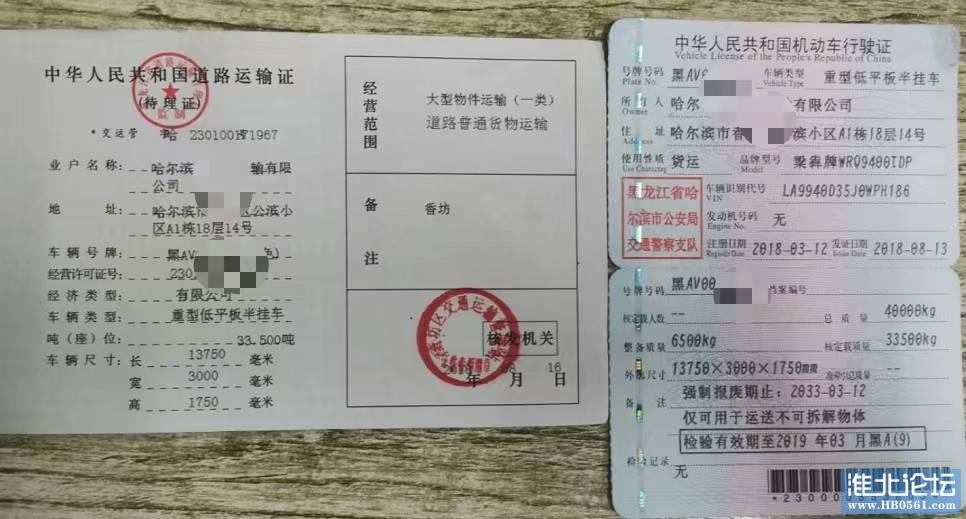 中华人民共和国道路运输证
(待理证)
监制
*交运管
哈
230100
1967
业户名称:
哈尔滨
输有限
公司
地 址:
哈尔滨
区公滨小
区A1栋18层14号
车辆号牌:
黑AV
色)
经营许可证号:
230
经济类型:
有限公司
车辆类型:
重型低平板半挂车
吨(座)位:
33.500吨
车辆尺寸: 长 13750 毫米
宽 3000 毫米
高 1750 毫米
经营范围
大型物件运输(一类)
道路普通货物运输
备注
香坊
核发机关
16
年 月 日
中华人民共和国机动车行驶证
Vehicle License of the People's Republic of China
号牌号码 黑AV0
Plate No.
车辆类型 重型低平板半挂车
Vehicle Type
所有人 哈尔
有限公司
Owner
住 址 哈尔滨市香
滨小区A1栋18层14号
Address
使用性质 货运
Use Character
品牌型号 梁犇牌WRQ9400TDP
Model
黑龙江省哈
尔滨市公安局
交通警察支队
车辆识别代号 LA9940D35J0WPH186
VIN
发动机号码 无
Engine No.
注册日期 2018-03-12 发证日期 2018-08-13
Register Date
Issue Date
号牌号码 黑AV00
档案编号
核定载人数 --
总质量 40000kg
整备质量 6500kg
核定载质量 33500kg
外廓尺寸 13750×3000×1750
--
备注
强制报废期止: 2033-03-12
仅可用于运送不可拆解物体
检验有效期至2019年03月黑A(9)
检验记录
无
*23000
淮北论坛
www.HB0561.com